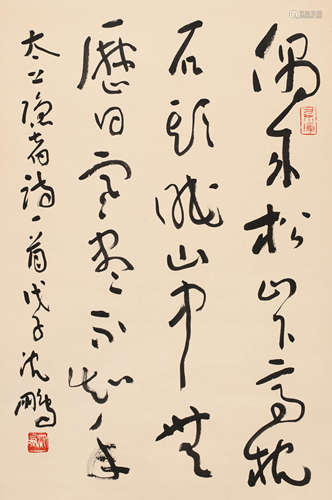 偶来松山下高枕
石頭眠山中無
歷日寒尽不知年
太上隐者詩一首戊子沈鵬